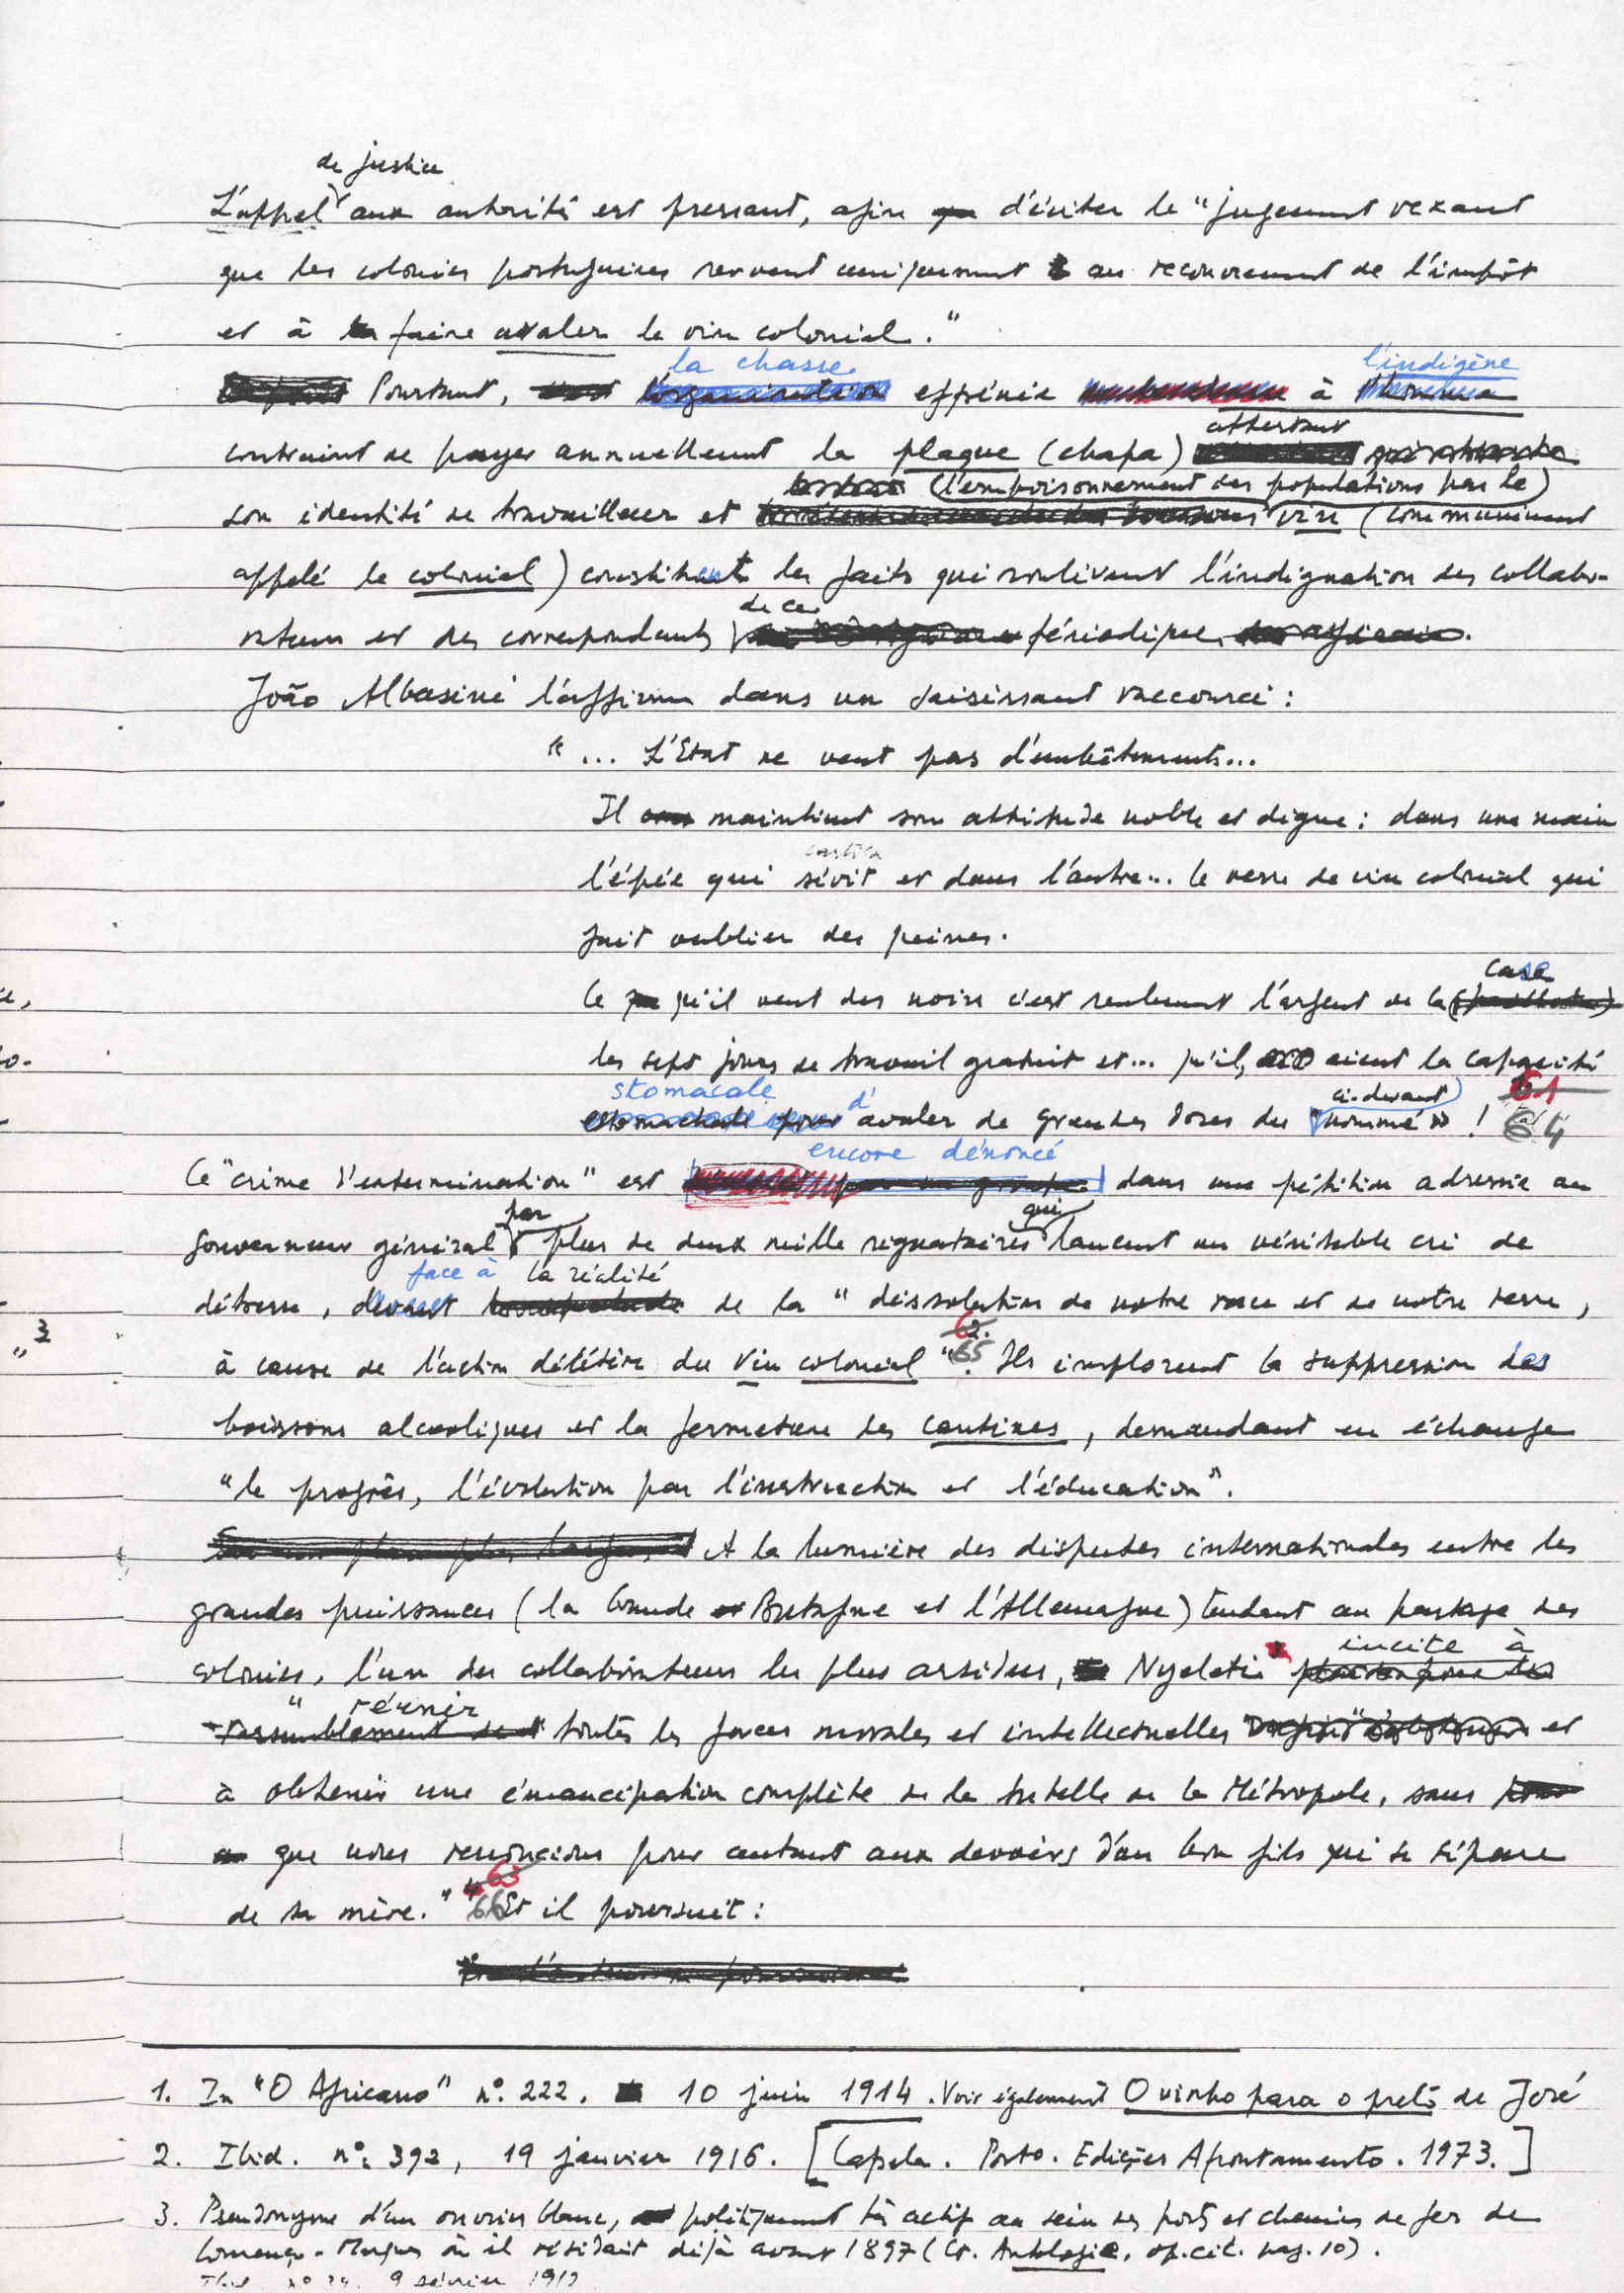 de justice
L'appel aux autorités est pressant, afin d'éviter le "jugement vexant
que les colonies portugaises servent uniquement au recouvrement de l'impôt
et à faire avaler le vin colonial."
la chasse l'indigène
Pourtant, effrénée à
attestant
contraint de payer annuellement la plaque (chapa)
(l'empoisonnement des populations par le)
son identité de travailleur et vin (communément
appelé le colonial) constituent les faits qui soulèvent l'indignation des collabo-
de ce
rateurs et des correspondants périodique.
João Albasini l'affirme dans un saisissant raccourci :
"... L'Etat ne veut pas d'embêtements...
Il maintient son attitude noble et digne : dans une main
l'épée qui sévit et dans l'autre... le verre de vin colonial qui
fait oublier des peines.
case
Ce qu'il veut des noirs c'est seulement l'argent de la
les sept jours de travail gratuit et... qu'ils aient la capacité
stomacale d' ci-devant 61
avaler de grandes doses du "nommé" ! 64
encore dénoncé
Ce "crime d'extermination" est dans une pétition adressée au
par qui
gouverneur général plus de deux mille signataires lancent un véritable cri de
face à la réalité
détresse, de la "dissolution de notre race et de notre terre,
62.
à cause de l'action délétère du vin colonial" 65. Ils implorent la suppression des
boissons alcooliques et la fermeture des cantines, demandant en échange
"le progrès, l'évolution par l'instruction et l'éducation".
A la lumière des disputes internationales entre les
grandes puissances (la Grande Bretagne et l'Allemagne) tendant au partage des
incite à
colonies, l'un des collaborateurs les plus assidus, Nyeleti
" réunir
toutes les forces morales et intellectuelles et
à obtenir une émancipation complète de la tutelle de la Métropole, sans
que nous renoncions pour autant aux devoirs d'un bon fils qui se sépare
63
de sa mère." 66 Et il poursuit :
1. In "O Africano" nº. 222. 10 juin 1914. Voir également O vinho para o preto de José
2. Ibid. nº. 392, 19 janvier 1916. [Capela. Porto. Edições Afrontamento. 1973.]
3. Pseudonyme d'un ouvrier blanc, politiquement très actif au sein des ports et chemins de fer de
Lourenço-Marques où il résidait déjà avant 1897 (Cf. Antologie, op.cit. pag. 10).
Ibid. 9 février 191
3